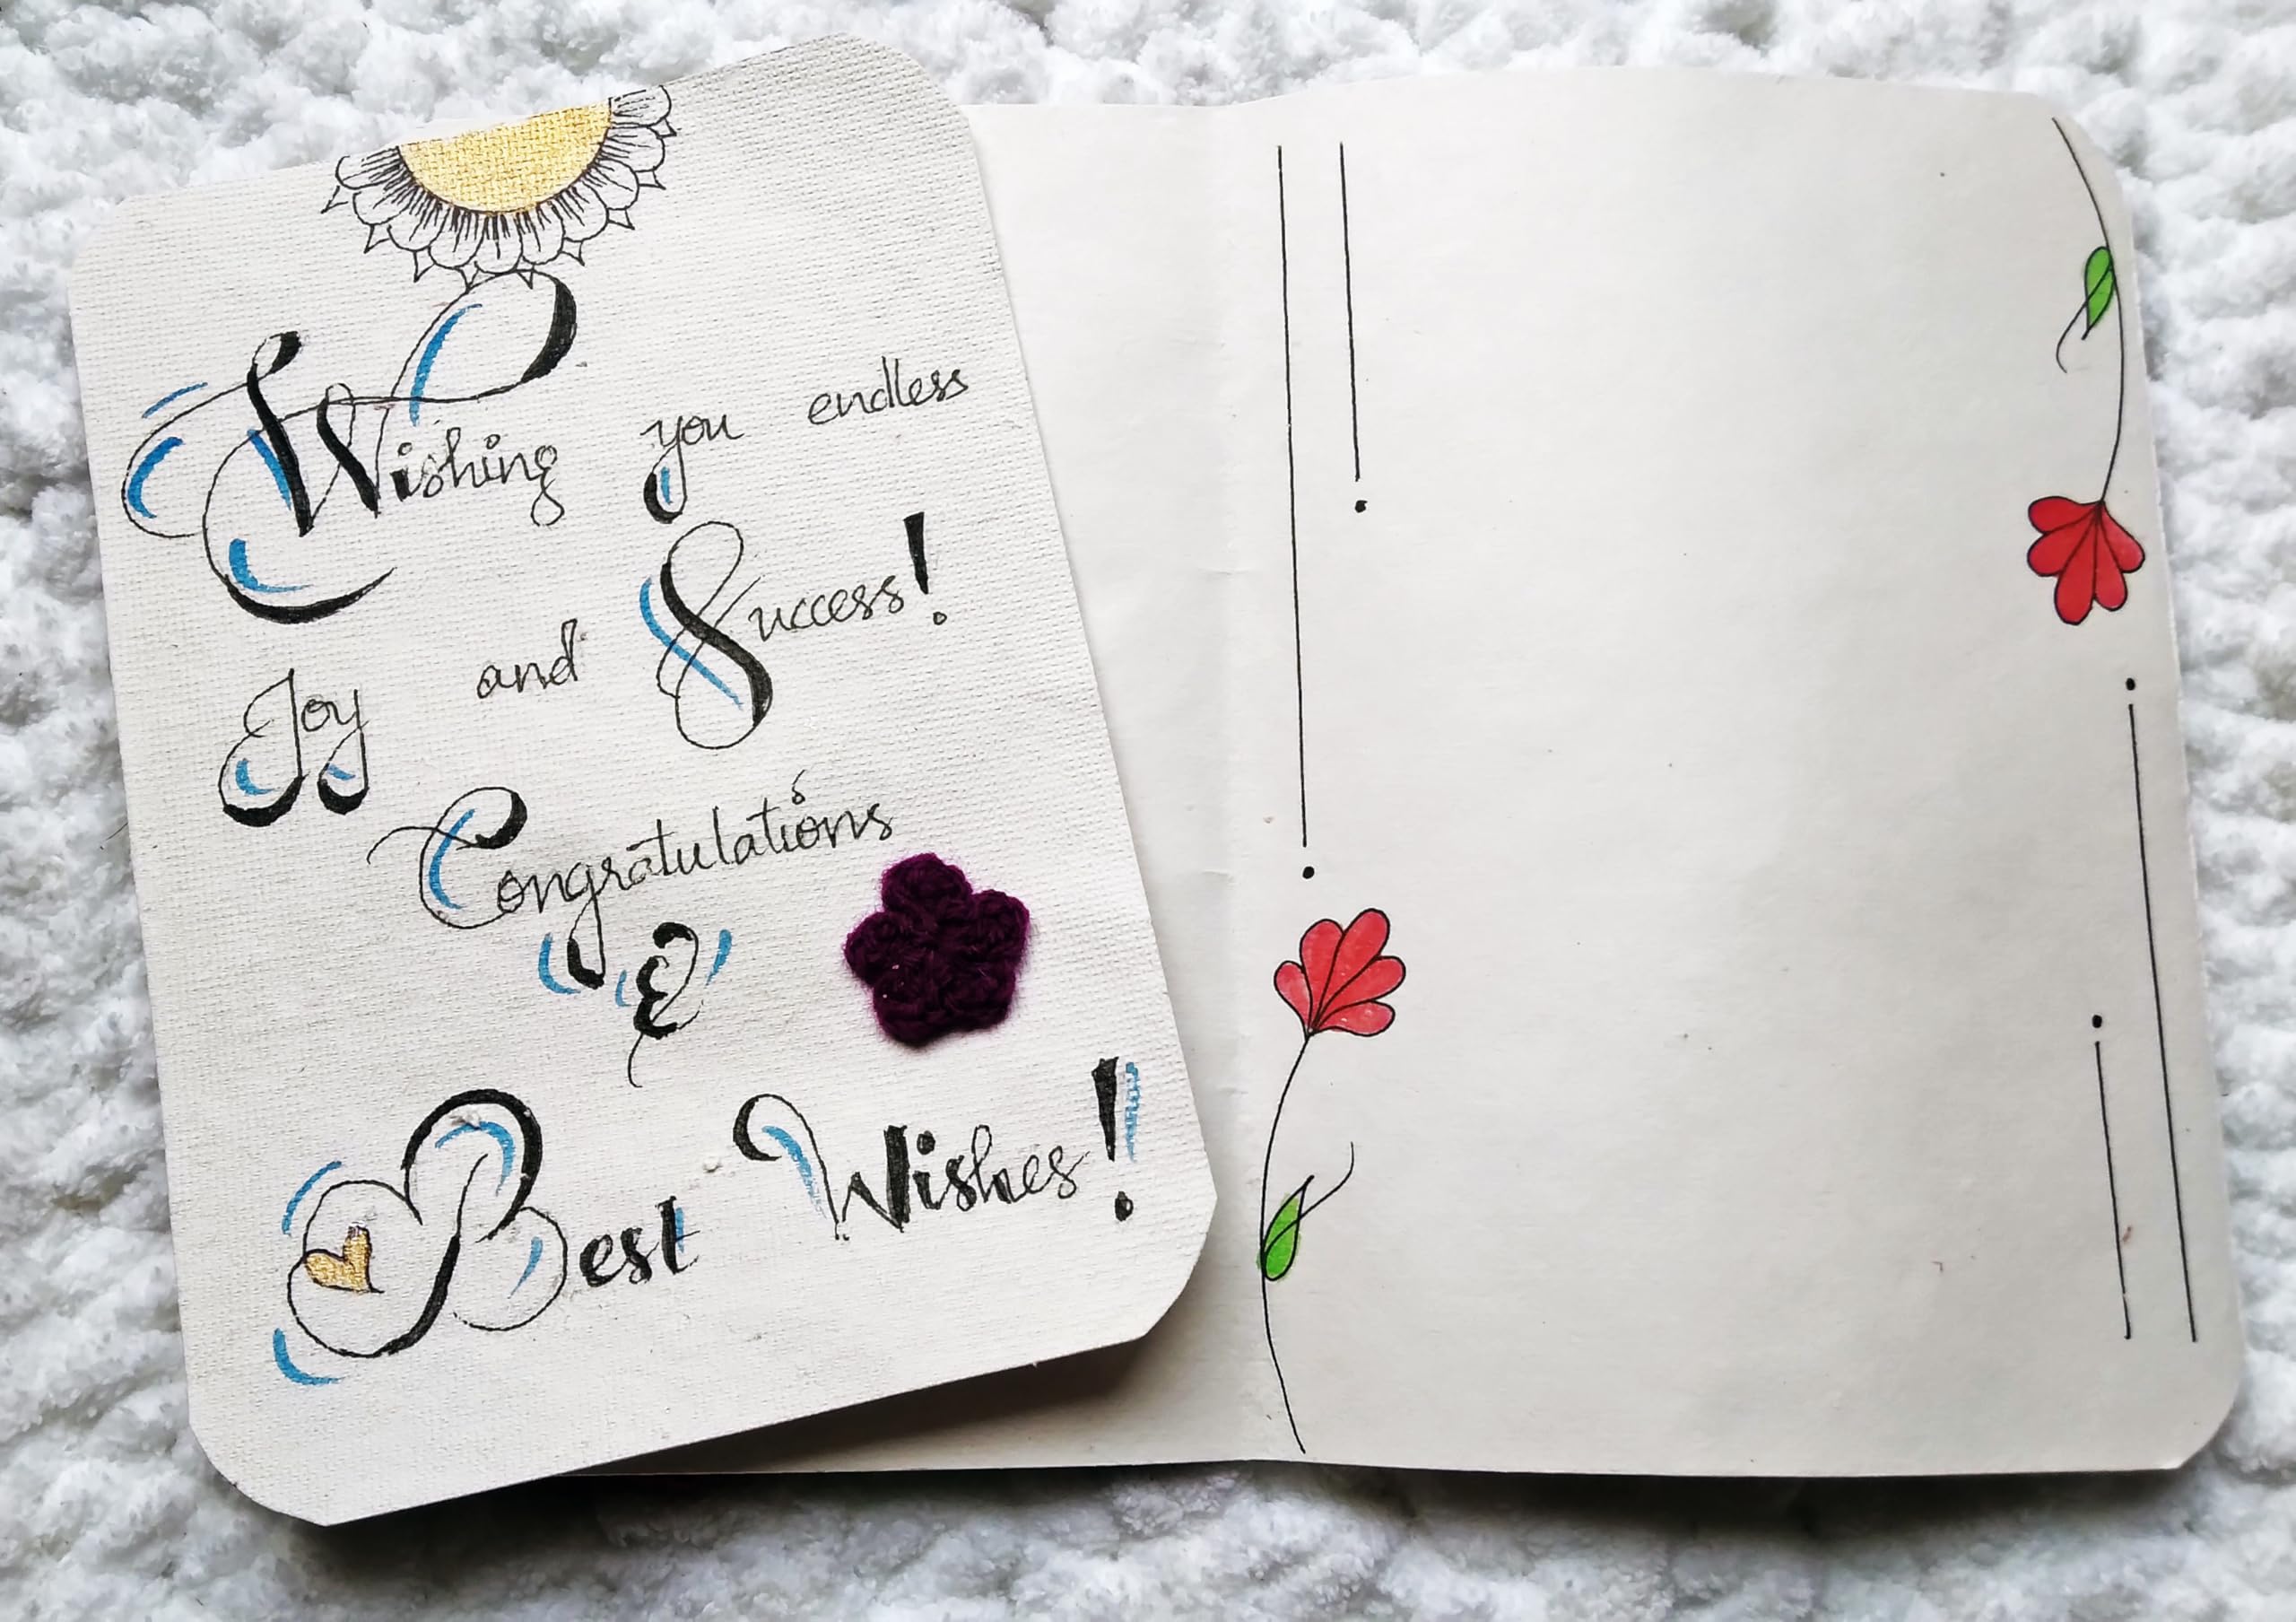 Wishing you endless
Joy and Success!
Congratulations
&
Best Wishes!